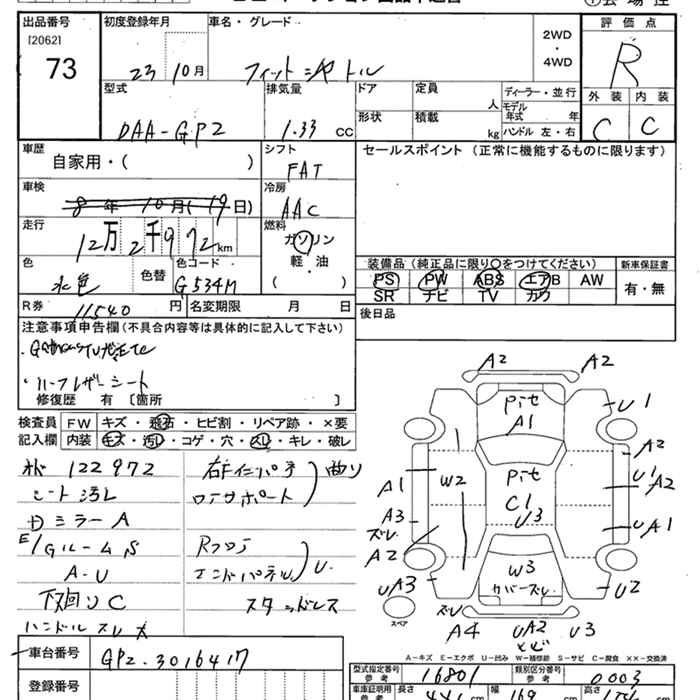 出品番号
[2062]
73
初度登録年月
23 10月
車名・グレード
フィット シャトル
2WD
・
4WD
評価点
R
外装 内装
C C
型式
DAA-GP2
排気量
1.33 CC
ドア
形状
定員
人
積載
kg
ディーラー・並行
モデル年式 年
ハンドル 左・右
車歴
自家用・( )
シフト
FAT
セールスポイント (正常に機能するものに限ります)
車検
8年 10月(19日)
冷房
AAC
走行
12万2千972km
燃料
ガソリン
軽・油
( )
色
水色
色替
色コード
G534M
装備品(純正品に限り○をつけてください)
PS PW ABS エアB AW
SR ナビ TV カワ
新車保証書
有・無
R券
11540 円
名変期限 月 日
後日品
注意事項申告欄(不具合内容等は具体的に記入して下さい)
・ハーフレザーシート
修復歴 有 〔箇所 〕
検査員
記入欄
FW キズ・飛石・ヒビ割・リペア跡・×要
内装 キズ・汚レ・コゲ・穴・スレ・キレ・破レ
122972
シート汚レ
ミラーA
E/Gルーム S
A-U
下回りC
ハンドルスレ大
右Fインパネ
ロアサポート
曲り
Rフロア
エンドパネル
U
スタッドレス
A2 A2
Pit
A1
U1
A2
U1
A2
UA1
U2
A1
A3
ズレ
A2
UA3
W2
Pit
C1
U3
W3
カバーズレ
スペア
ズレ
A4
UA2
U3
A-キズ E-エクボ U-凹み W-補修跡 S-サビ C-腐食 ××-交換済
車台番号
GP2-3016417
登録番号
型式指定番号
参考
16801
類別区分番号
参考
0003
車庫証明用
参考
長さ
441cm
幅
169
高さ
154